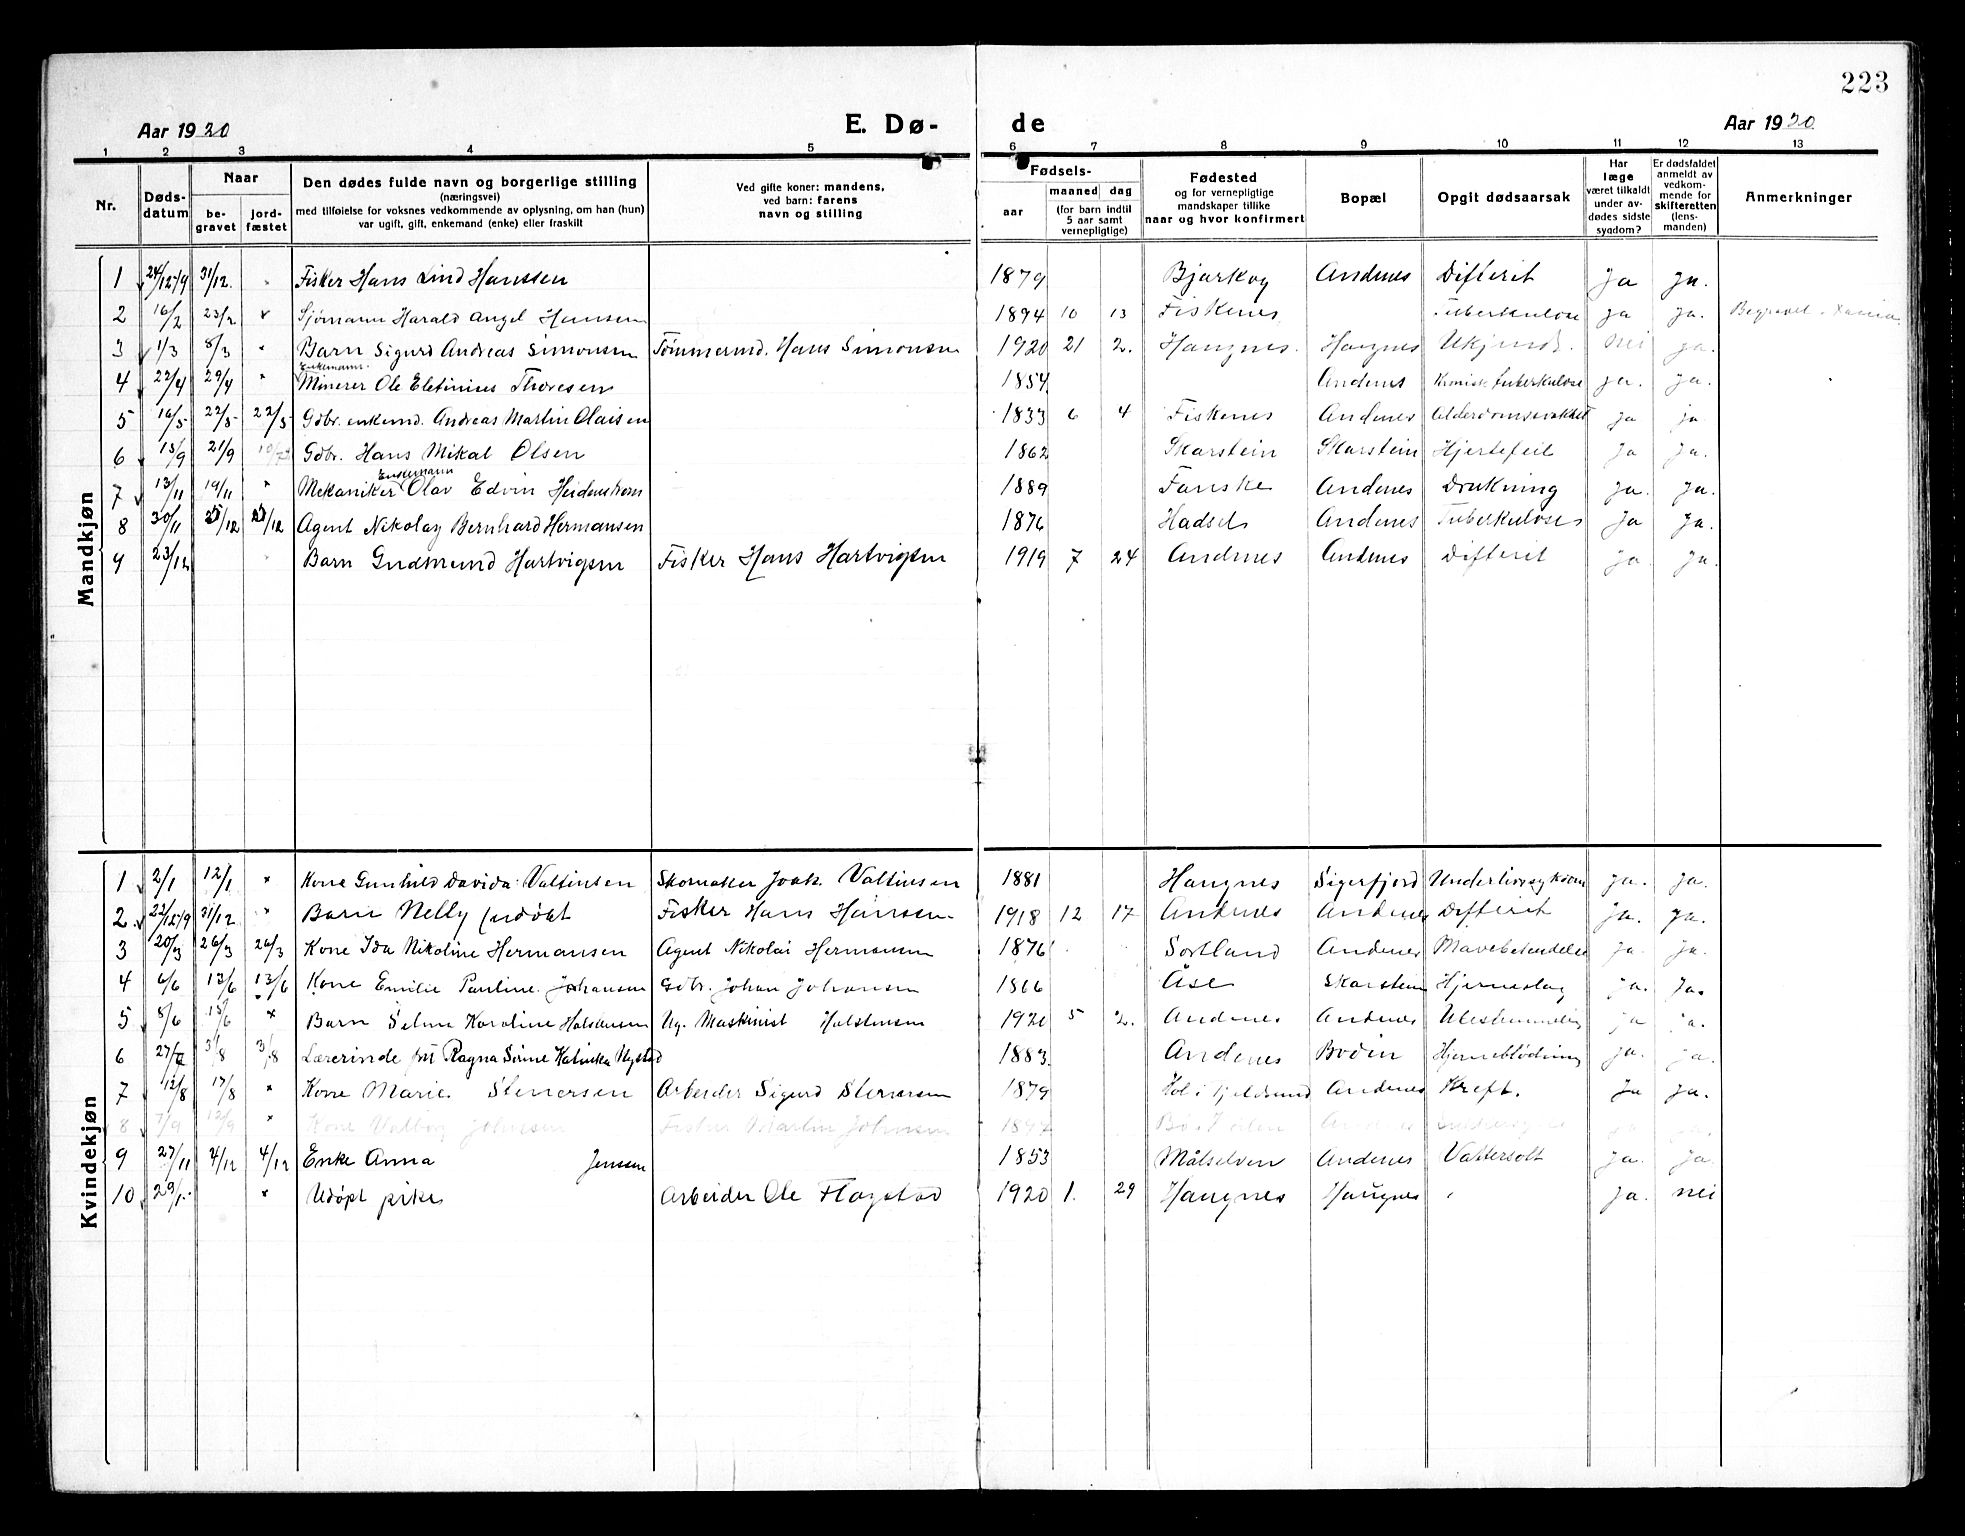 223
Aar 1920 E. Dø- de Aar 1920
1 2 3 4 5 6 7 8 9 10 11 12 13
Nr. Døds-datum Naar be-gravet jord-fæstet Den dødes fulde navn og borgerlige stilling (næringsvei) med tilføielse for voksnes vedkommende av oplysning, om han (hun) var ugift, gift, enkemand (enke) eller fraskilt Ved gifte koner: mandens, ved barn: farens navn og stilling Fødsels- aar maaned dag (for barn indtil 5 aar samt vernepligtige) Fødested og for vernepligtige mandskaper tillike naar og hvor konfirmert Bopæl Opgit dødsaarsak Har læge været tilkaldt under av-dødes sidste sygdom? Er dødsfaldet anmeldt av vedkom-mende for skifteretten (lens-manden) Anmerkninger
Mandkjøn
1 24/12-19 31/12. " Fisker Hans Lind Hanssen 1879 Bjarkøy Andenes Difterit Ja Ja.
2 16/2 23/2 Sjømann Harald Angel Hansen 1894 10 13 Fiskenes Tuberkulose Ja Ja. Begravet
3 1/3 8/3 " Barn Sigurd Andreas Simonsen Tømmermd. Hans Simonsen 1920 21 2. Haugnes. Haugnes Ukjendt. Nei Ja.
Enkemann.
4 22/4 29/4 " Minerer Ole Thoresen 1854 Andenes Kronisk tuberkulose Ja. Ja.
5 16/5 22/5 22/5 Gdbr. enkemd. Andreas Martin Olaisen 1833 6 4 Fiskenes Andenes Alderdomssvakhet Ja Ja
6 13/9 21/9 Gdbr. Hans Mikal Olsen 1862 Skarstein Skarstein Hjertefeil Ja Ja.
Enkemann
7 13/11 19/11 " Mekaniker Olav Edvin Heidenstrøm 1889 Fauske Andenes Drukning Ja. Ja.
8 30/11 5/12 /12 Agent Nikolay Bernhard Hermansen 1876 Hadsel Andenes Tuberkulose Ja Ja.
9 23/12 Barn Gudmund Hartvigsen Fisker Hans Hartvigsen 1919 7 24 Andenes Andenes Difterit Ja Ja.
Kvindekjøn
1 2/1 12/1 " Kone Gunhild Davida Valtinsen Skomaker Joak. Valtinsen 1881 Haugnes Sigerfjord Underlivssykdom Ja. Ja.
2 22/12-19 31/12 " Barn Nelly (udøbt Fisker Hans Hansen 1918 12 17 Andenes Andenes Difterit Ja. Ja.
3 20/3 26/3 26/3 Kone Ida Nikoline Hermansen Agent Nikolai Hermansen 1876 Sortland Andenes Mavebetendelse Ja. Ja.
4 6/6 13/6 13/6 Kone Emilie Pauline Johansen Gdbr. Johan Johansen 1866 Åse Skarstein Hjerneslag Ja. Ja.
5 8/6 13/6 " Barn Selma Karoline Halstensen Ug. Maskinist Halstensen 1920 5 2. Andenes Andenes Ja Ja.
6 27/7 3/8 3/8 Lærerinde frk Ragna Sirine Katinka Nystad 1883 Andenes Bodin Hjerneblødning Ja. Ja.
7 12/8 17/8 " Kone Marie Stenersen Arbeider Sigurd Stenersen 1879 Hol i Tjeldsund Andenes Kreft. Ja Ja.
8 7/9 12/9 " Kone Valborg Johnsen Fisker Martin Johnsen Andenes
9 27/11 4/12 4/12 Enke Anna Jenssen 1853 Målselven Andenes Vattersott Ja. Ja.
10 29/1 " Udøpt pike Arbeider Ole Flagstad 1920 1. 29 Haugnes Haugnes Ja. Nei